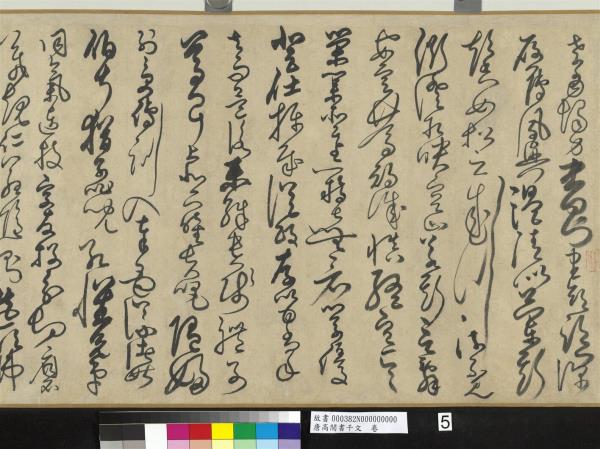 孝當竭力忠則盡命臨深
履薄夙興溫凊似蘭斯
馨如松之盛川流不息
淵澄取映容止若思言辭
安定篤初誠美慎終宜令
榮業所基籍甚無竟學優
登仕攝職從政存以甘棠
去而益詠樂殊貴賤禮別
尊卑上和下睦夫唱隨婦
外受傅訓入奉母儀諸姑
伯叔猶子比兒孔懷兄弟
同氣連枝交友投分切磨
箴規仁慈隱惻造次弗
故書 000382N000000000
唐高閒書千文 卷
5